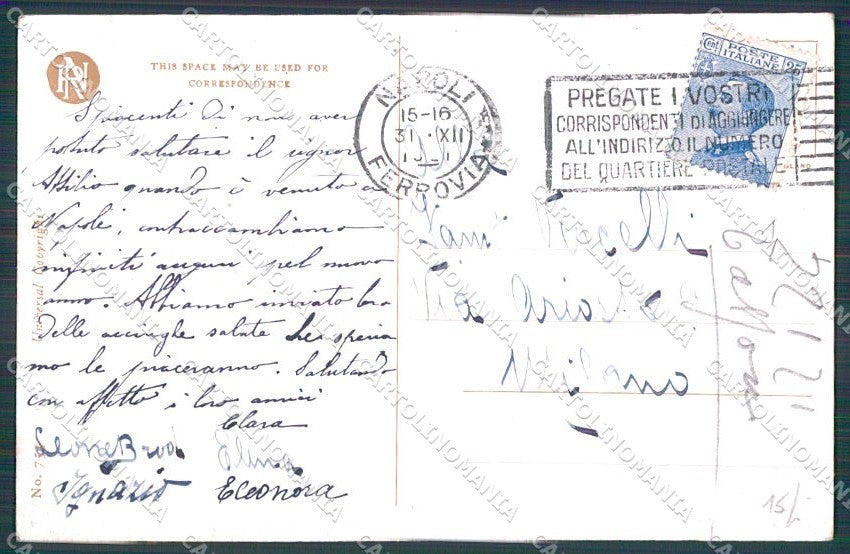 THIS SPACE MAY BE USED FOR
CORRESPONDENCE
Spiacenti di non aver
potuto salutare il signor
Attilio quando è venuto a
Napoli, contraccambiamo
infiniti auguri pel nuovo
anno. Abbiamo inviato loro
delle acciughe salate che speria
mo le piaceranno. Salutando
con affetto i loro amici
Clara
Leone
Ignazio
Eleonora
Universal Copyright
No.
NAPOLI
15-16
31 XII
FERROVIA
POSTE
ITALIANE
Cent. 25
PREGATE I VOSTRI
CORRISPONDENTI DI AGGIUNGERE
ALL'INDIRIZZO IL NUMERO
DEL QUARTIERE POSTALE
Via
Milano
15/-
CARTOLINOMANIA